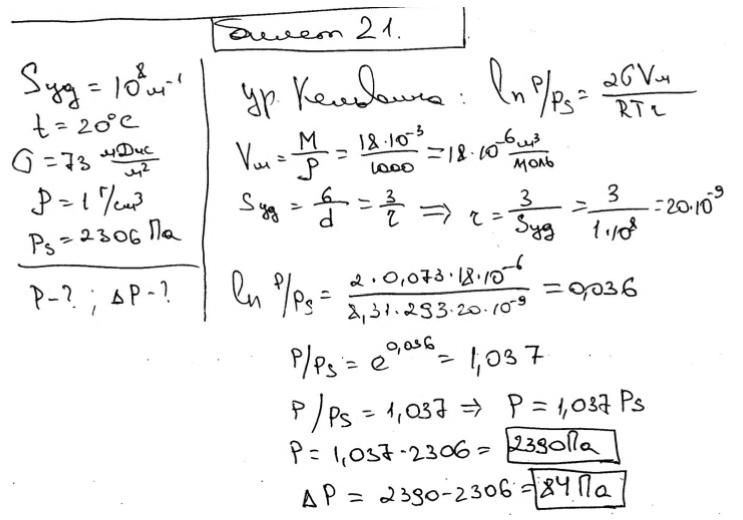 Билет 21.
Sуд = 10⁸ м⁻¹
t = 20°C
G = 73 мДж/м²
ρ = 1 г/см³
Ps = 2306 Па
P-? ; ΔP-?
ур. Кельвина: ln P/Ps = 2GVм/RTr
Vм = M/ρ = 18·10⁻³/1000 = 18·10⁻⁶ м³/моль
Sуд = 6/d = 3/r ⇒ r = 3/Sуд = 3/1·10⁸ = 20·10⁻⁹
ln P/Ps = 2·0,073·18·10⁻⁶/8,31·293·20·10⁻⁹ = 0,036
P/Ps = e^0,036 = 1,037
P/Ps = 1,037 ⇒ P = 1,037 Ps
P = 1,037·2306 = 2390 Па
ΔP = 2390-2306 = 84 Па